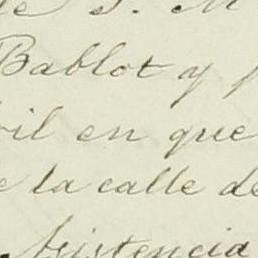 de S. M
Bablot y
il en que
e la calle de
Asistencia